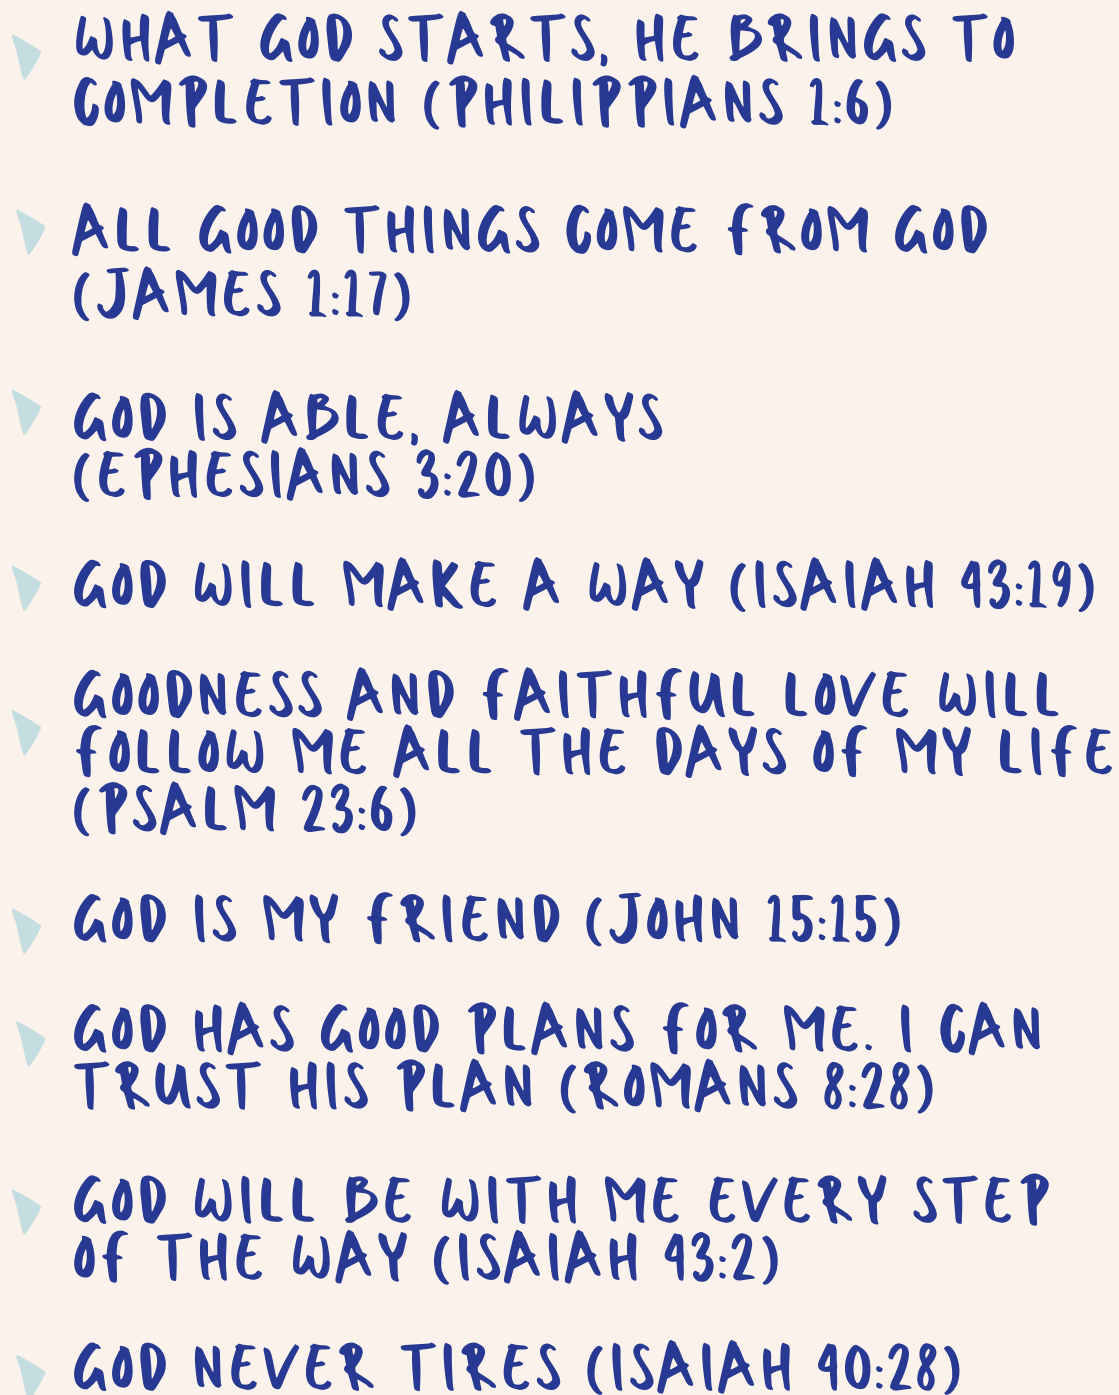 WHAT GOD STARTS, HE BRINGS TO
COMPLETION (PHILIPPIANS 1:6)
ALL GOOD THINGS COME FROM GOD
(JAMES 1:17)
GOD IS ABLE, ALWAYS
(EPHESIANS 3:20)
GOD WILL MAKE A WAY (ISAIAH 43:19)
GOODNESS AND FAITHFUL LOVE WILL
FOLLOW ME ALL THE DAYS OF MY LIFE
(PSALM 23:6)
GOD IS MY FRIEND (JOHN 15:15)
GOD HAS GOOD PLANS FOR ME. I CAN
TRUST HIS PLAN (ROMANS 8:28)
GOD WILL BE WITH ME EVERY STEP
OF THE WAY (ISAIAH 43:2)
GOD NEVER TIRES (ISAIAH 40:28)